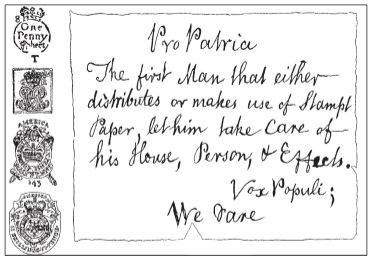 One
Penny
Sheet
T
AMERICA
143
Pro Patria
The first Man that either
distributes or makes use of Stampt
Paper, let him take Care of
his House, Person, & Effects.
Vox Populi;
We dare